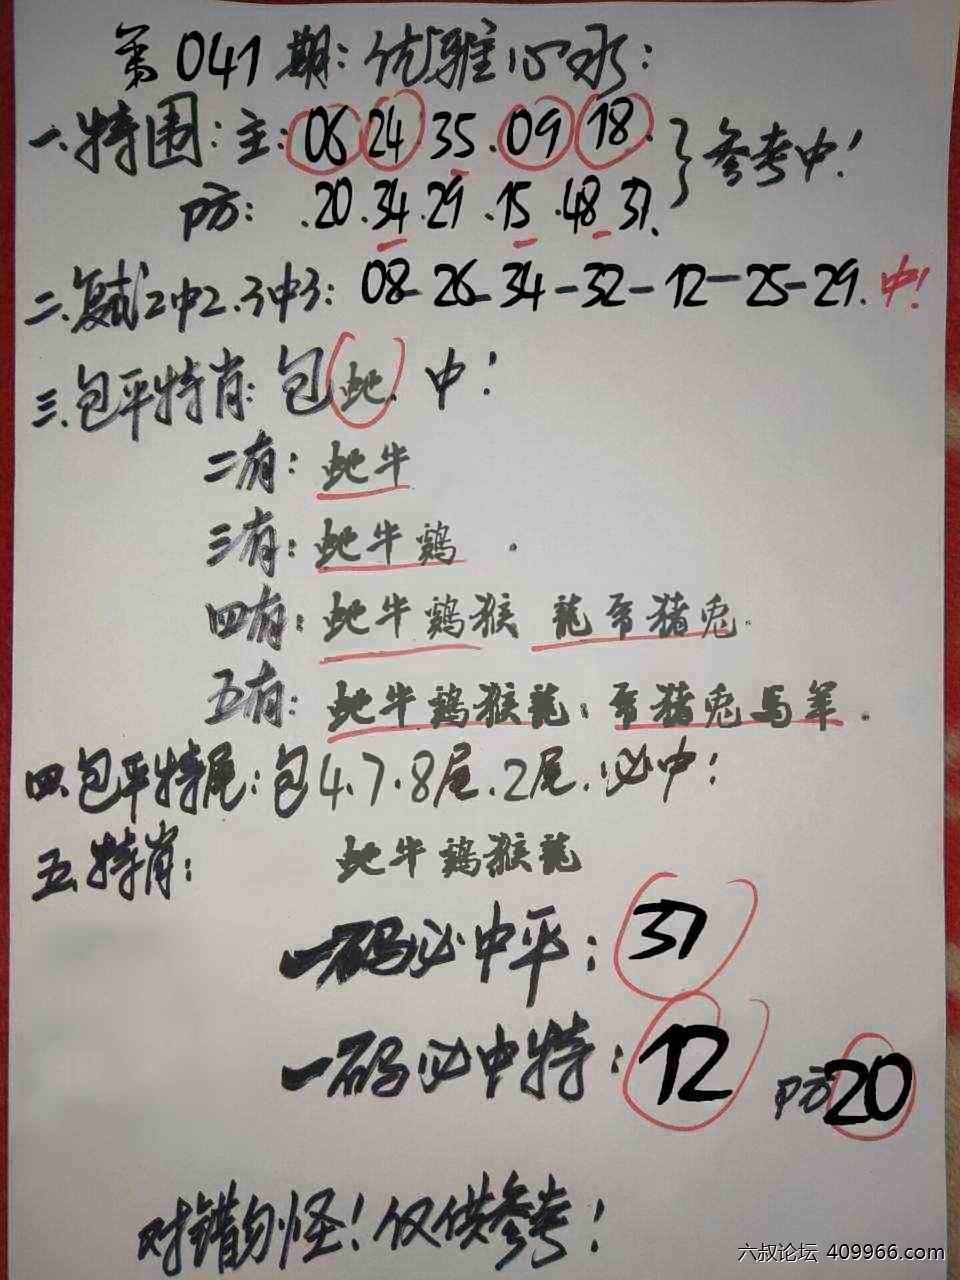 第041期:优雅心水:
一.特围:主:06.24.35.09.18.}参考中!
防:.20.34.29.15.48.37.
二.复式2中2.3中3:08-26-34-32-12-25-29.中!
三.包平特肖:包蛇.中!
二有:蛇牛
三有:蛇牛鷄.
四有:蛇牛鷄猴 龍 猪兎.
五有:蛇牛鷄猴龍: 猪兎馬羊.
四.包平特尾:包4.7.8尾.2尾.必中!
五.特肖:蛇牛鷄猴龍
一码必中平:37
一码必中特:12 防20
对错勿怪!仅供参考!
六叔论坛 409966.com